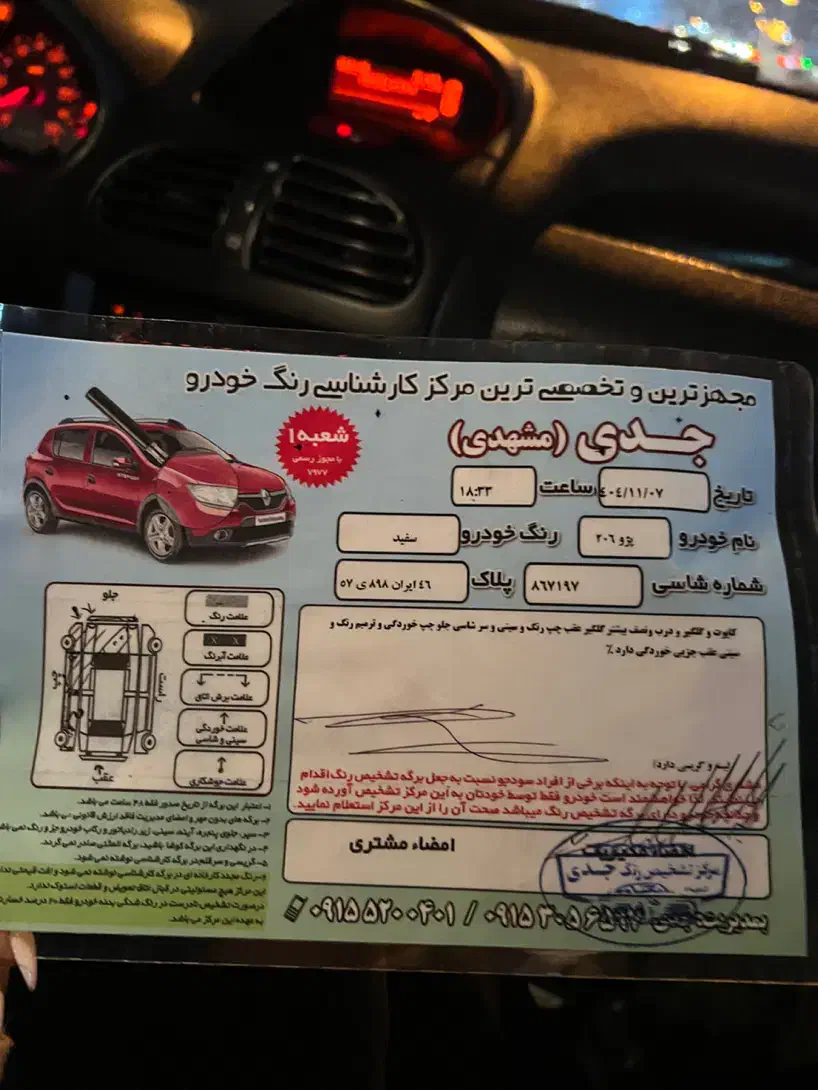 مجهزترین و تخصصی ترین مرکز کارشناسی رنگ خودرو
جدی (مشهدی)
شعبه ۱
با مجوز رسمی
۷۹۷۷
تاریخ ۴۰۴/۱۱/۰۷ ساعت ۱۸:۳۳
نام خودرو پژو ۲۰۶ رنگ خودرو سفید
شماره شاسی ۸۶۷۱۹۷ پلاک ۴۶ ایران ۸۹۸ ی ۵۷
کاپوت و گلگیر و درب ونصف بیشتر گلگیر عقب چپ رنگ و سینی و سر شاسی جلو چپ خوردگی و ترمیم رنگ و
سینی عقب جزیی خوردگی دارد٪
جلو
چپ
راست
عقب
علامت رنگ
X X
علامت آبرنگ
علامت برش اتاق
علامت خوردگی
سینی و شاسی
علامت جوشکاری
لیسه و گریسی دارد)
مشتری گرامی با توجه به اینکه برخی از افراد سودجو نسبت به جعل برگه تشخیص رنگ اقدام
خواهشمند است خودرو فقط توسط خودتان به این مرکز تشخیص آورده شود
برگه تشخیص رنگ میباشد صحت آن را از این مرکز استعلام نمایید.
۱- اعتبار این برگه از تاریخ صدور فقط ۴۸ ساعت می باشد.
۲- برگه های بدون مهر و امضای مدیریت فاقد ارزش قانونی می باشد.
۳- سپر، جلوی پنجره، آینه، سینی زیر رادیاتور و رکاب خودرو جز و رنگ نمی باشد
۴- در نگهداری این برگه کوشا باشید، برگه المثنی صادر نمی گردد.
۵- گریسی و سرقلم در برگه کارشناسی نوشته نمی شود.
۶- رنگ مجدد کارخانه ای در برگه کارشناسی نوشته نمی شود و افت قیمتی ندارد
این مرکز هیچ مسئولیتی در قبال اتاق تعویض و قطعات استوک ندارد.
درصورت تشخیص نادرست در رنگ شدگی بدنه خودرو فقط ۶۰ درصد خسارت
به عهده این مرکز می باشد.
امضاء مشتری
امضاء مدیریت
مرکز تشخیص رنگ جدی
۰۹۱۵ ۵۲۰۰ ۴۰۱ /